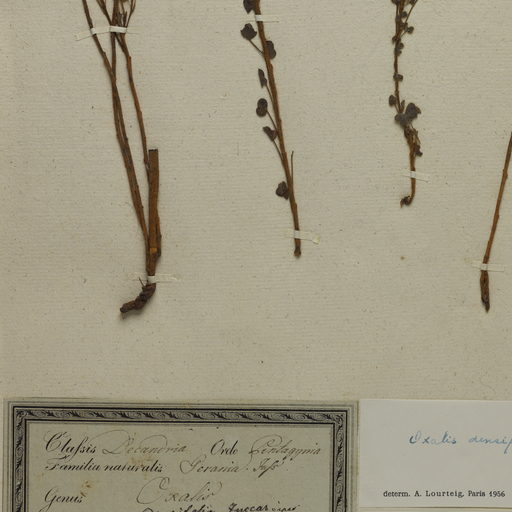 Classis Decandria Ordo Pentagynia
Familia naturalis Gerania. Juss.
Genus Oxalis
Zuccarini
Oxalis
determ. A. Lourteig, Paris 1956